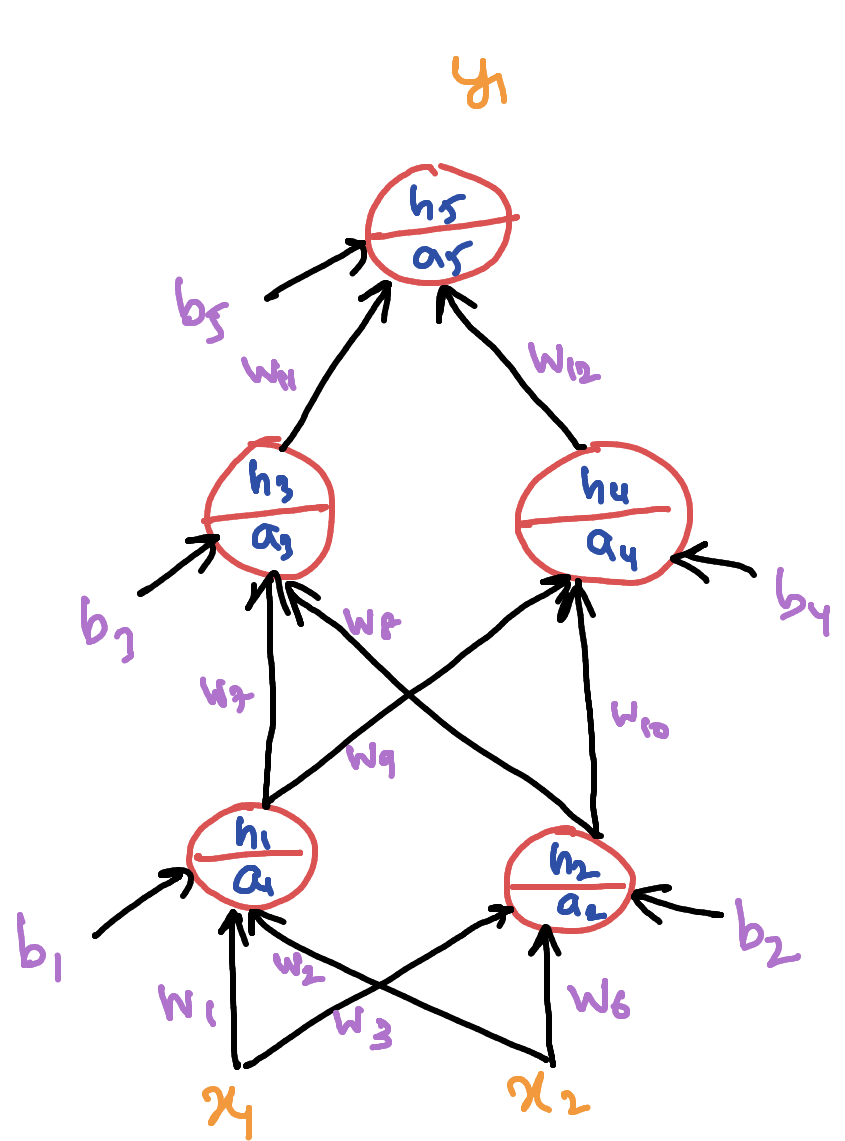 y1
h5
a5
b5
w11
w12
h3
a3
h4
a4
b3
b4
w8
w7
w10
w9
h1
a1
h2
a2
b1
b2
w2
w1
w3
w6
x1
x2